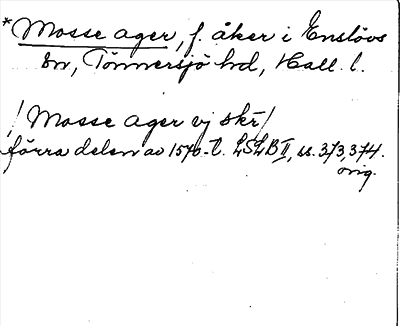 *Mosse ager, f. åker i Enslövs
sn, Tönnersjö hd, Hall. l.
/Mosse ager vj skr/
förra delen av 1570-t. LSLB II, ss. 373, 374.
orig.